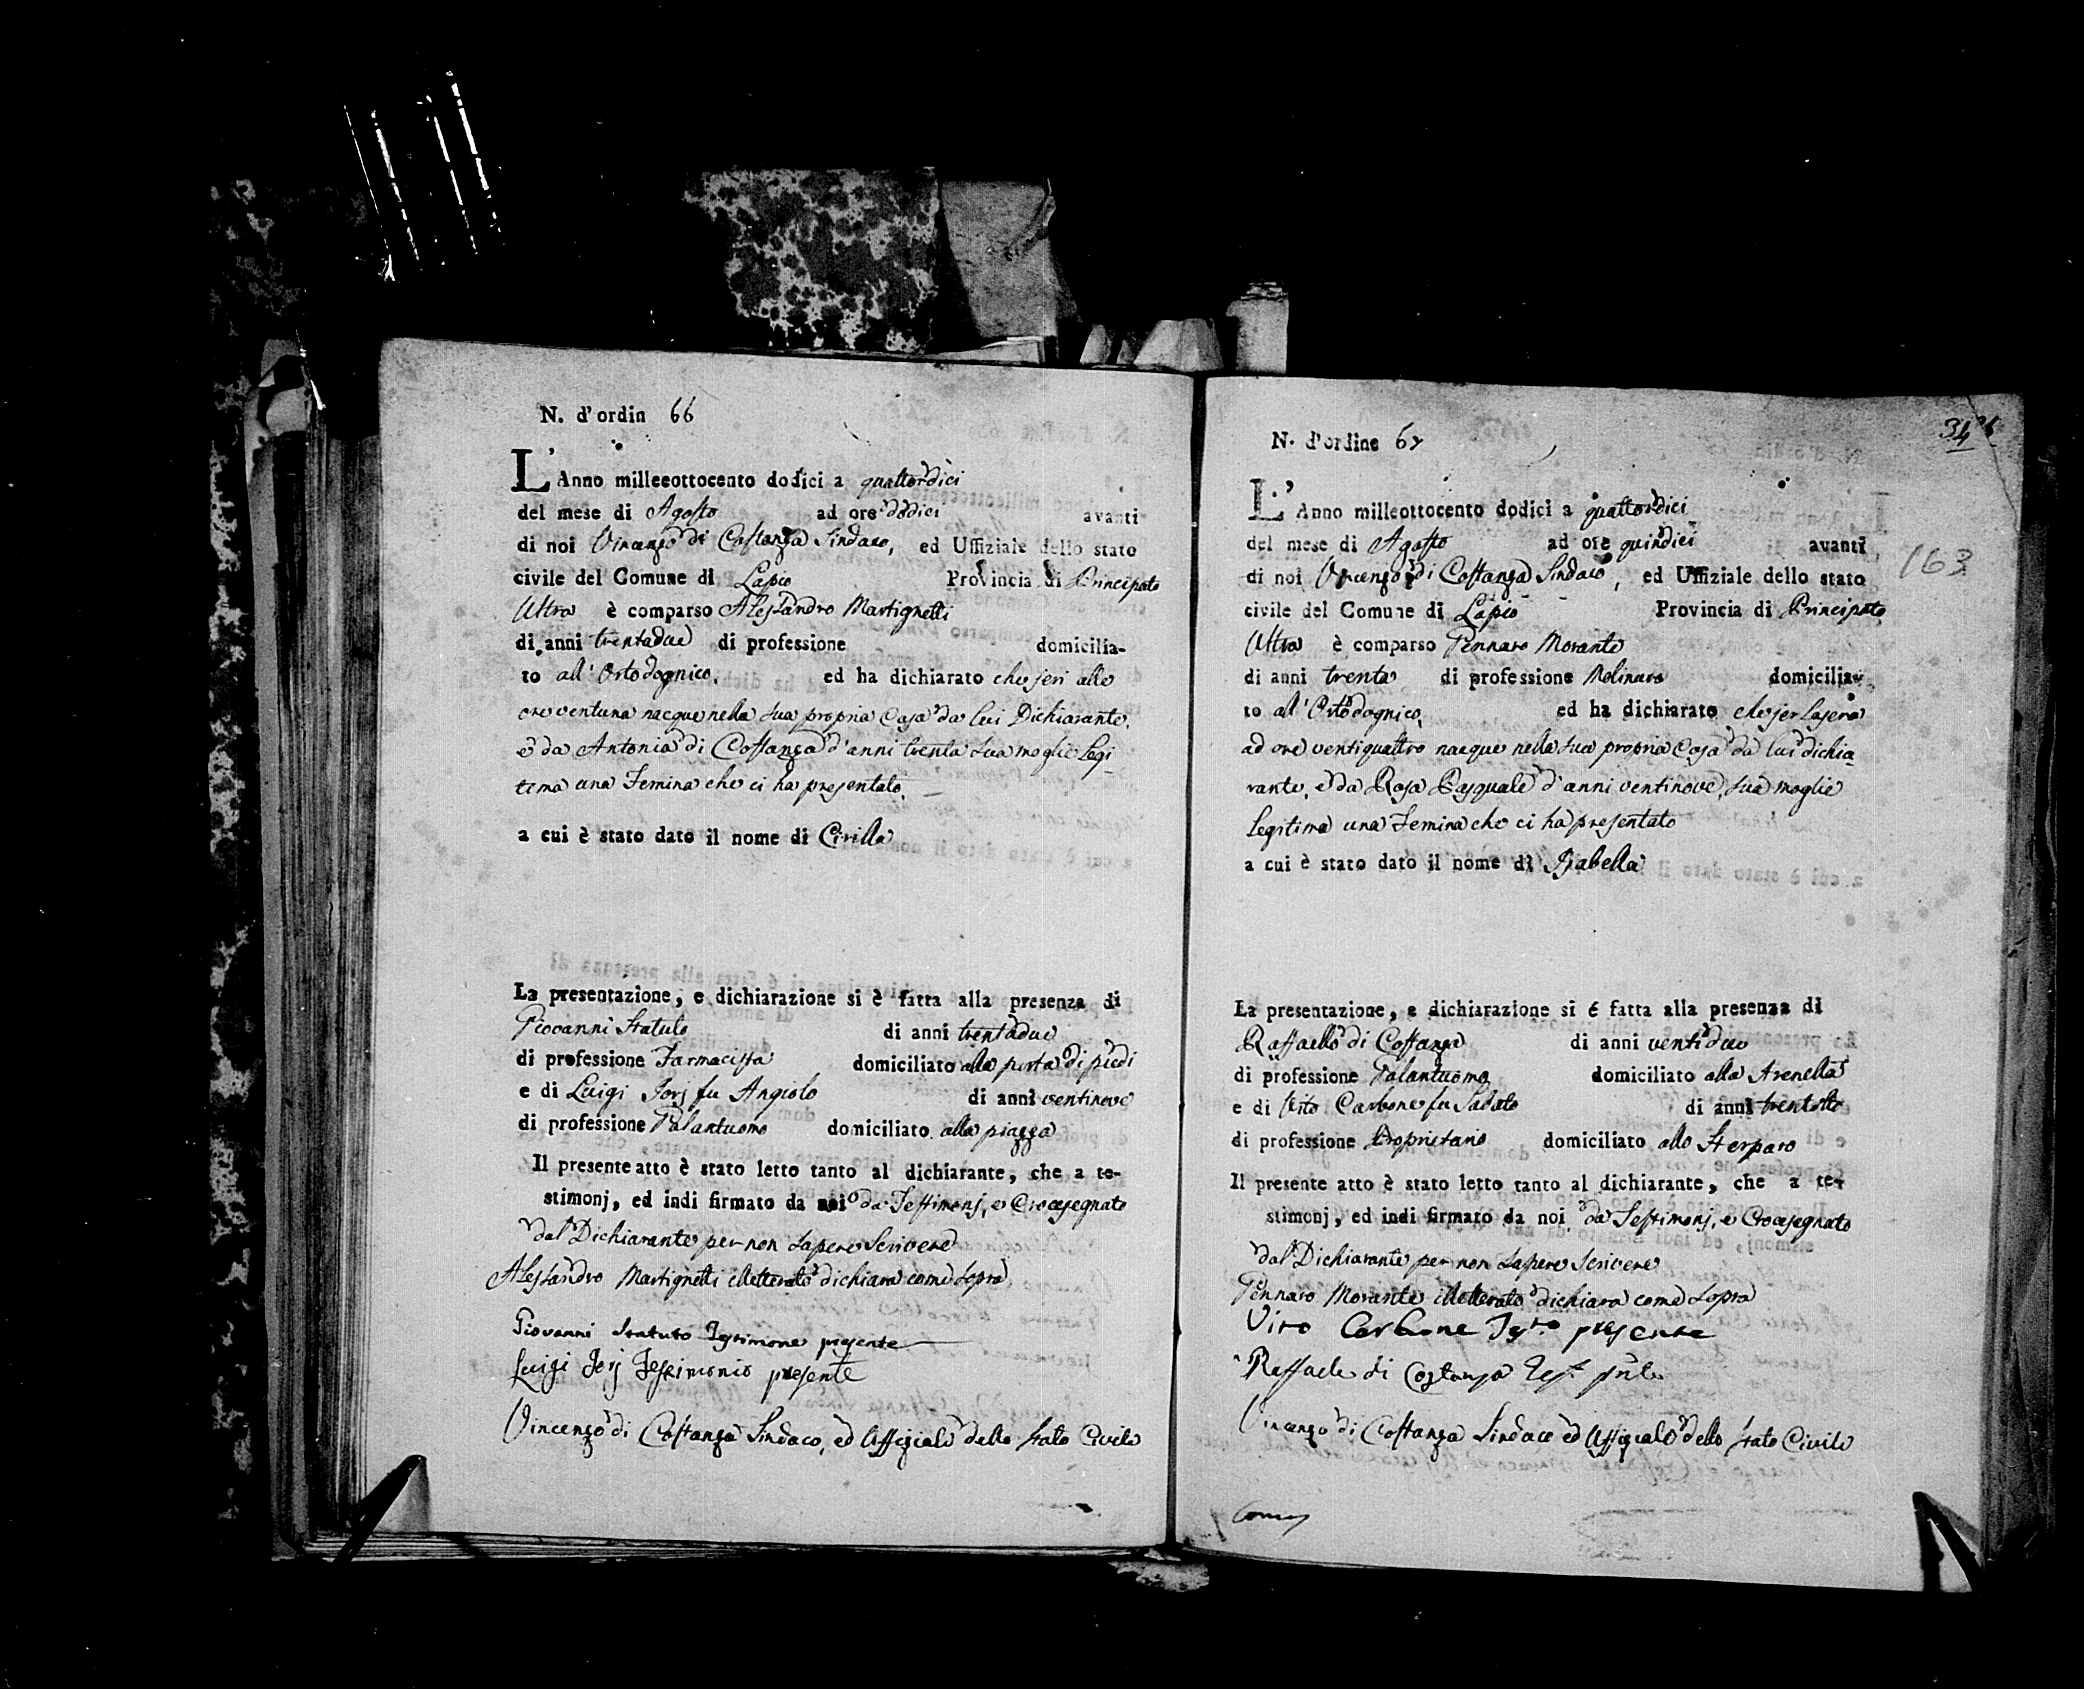 N. d'ordin 66
L'Anno milleeottocento dodici a quattordici
del mese di Agosto ad ore dodici avanti
di noi Vincenzo di Costanza Sindaco, ed Uffiziale dello stato
civile del Comune di Lapio Provincia di Principato
Ultra è comparso Alessandro Martignetti
di anni trentadue di professione domicilia-
to all'Ortodognico, ed ha dichiarato che jeri alle
ore ventuna nacque nella sua propria Casa da lui Dichiarante,
e da Antonia di Costanza d'anni trenta sua moglie Legi
tima una Femina che ci ha presentato.
a cui è stato dato il nome di Cirilla
La presentazione, e dichiarazione si è fatta alla presenza di
Giovanni Statuto di anni trentadue
di professione Farmacista domiciliato alla porta di piedi
e di Luigi Jorj fu Angiolo di anni ventinove
di professione Galantuomo domiciliato alla piazza
Il presente atto è stato letto tanto al dichiarante, che a te-
stimonj, ed indi firmato da noi da Testimonj, e Crocesegnato
dal Dichiarante per non sapere Scrivere
Alessandro Martignetti illetterato dichiara come sopra
Giovanni Statuto Testimone presente
Luigi Jorj Testimonio presente
Vincenzo di Costanza Sindaco, ed Uffiziale dello Stato Civile
34
N. d'ordine 67
L'Anno milleottocento dodici a quattordici
del mese di Agosto ad ore quindici avanti
di noi Vincenzo di Costanza Sindaco, ed Uffiziale dello stato
163
civile del Comune di Lapio Provincia di Principato
Ultra è comparso Gennaro Morante
di anni trenta di professione Molinaro domicilia-
to all'Ortodognico, ed ha dichiarato che jer lasera
ad ore ventiquattro nacque nella sua propria Casa da lui dichia
rante, e da Rosa Pasquale d'anni ventinove, sua moglie
Legitima una Femina che ci ha presentato
a cui è stato dato il nome di Isabella
La presentazione, e dichiarazione si é fatta alla presenza di
Raffaello di Costanza di anni ventidue
di professione Galantuomo domiciliato alla Arenella
e di Vito Carbone fu Sabato di anni trentotto
di professione Proprietario domiciliato allo Sterparo
Il presente atto è stato letto tanto al dichiarante, che a te-
stimonj, ed indi firmato da noi da Testimonj, e Crocesegnato
dal Dichiarante per non sapere Scrivere
Gennaro Morante illetterato dichiara come sopra
Vito Carbone Testo presente
Raffaele di Costanza Test. pnte
Vincenzo di Costanza Sindaco ed Uffiziale dello Stato Civile